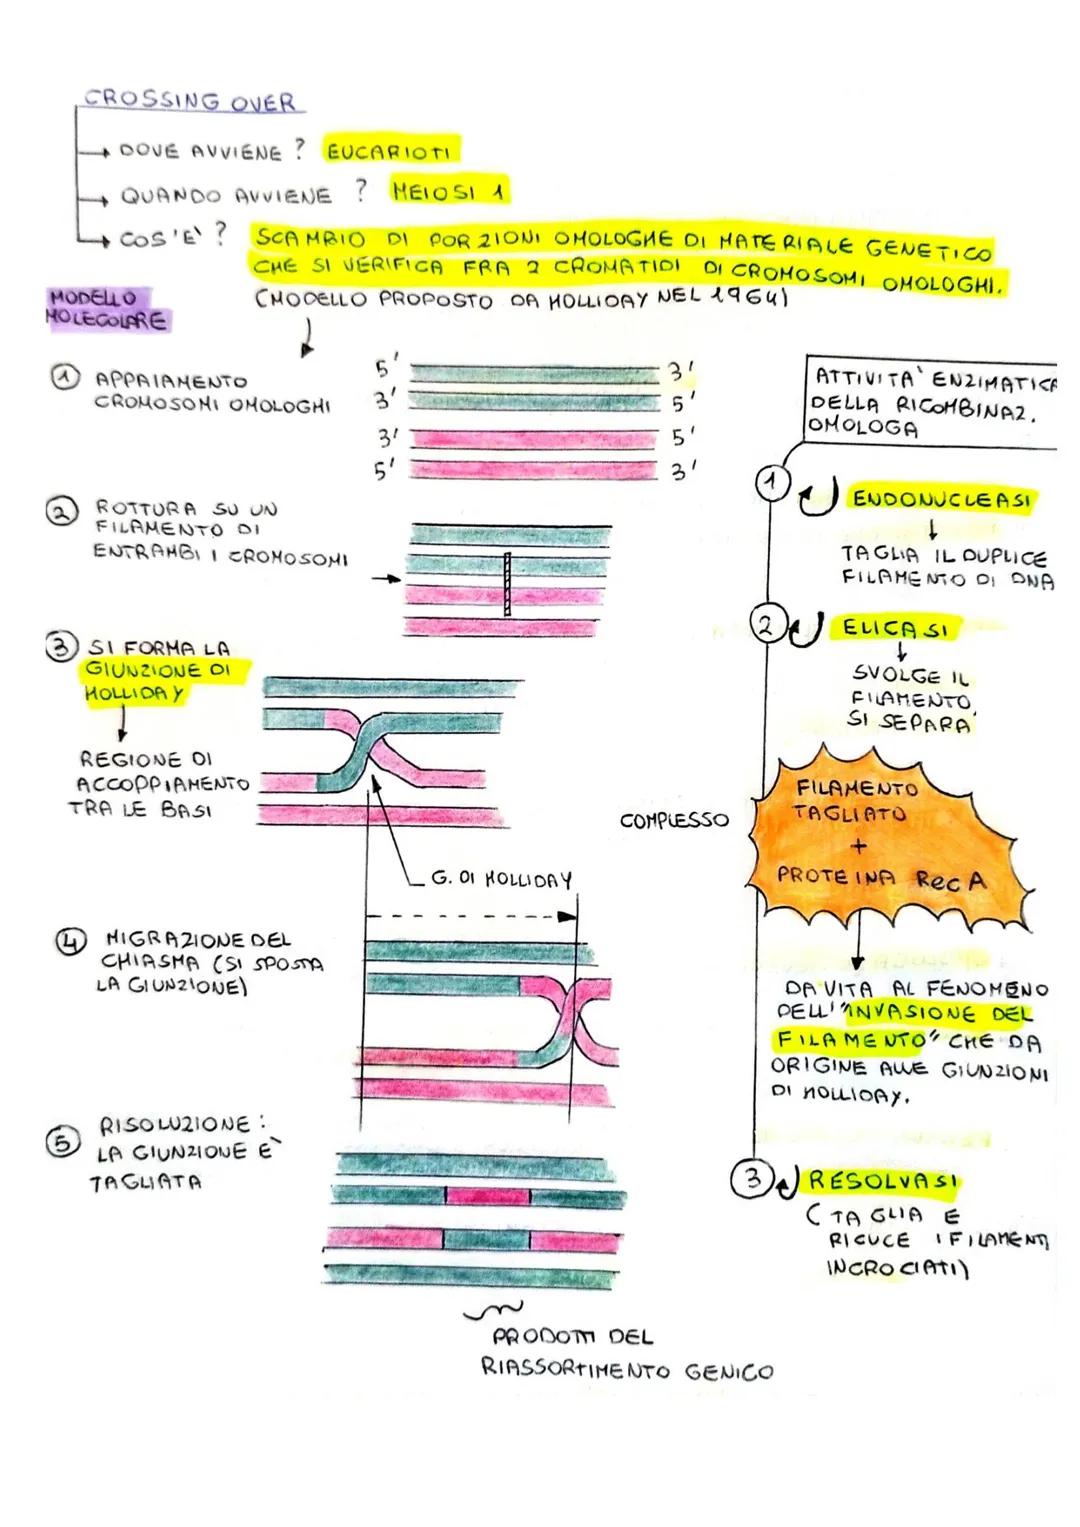 CROSSING OVER
DOVE AVVIENE ? EUCARIOTI
QUANDO AVVIENE ? MEIOSI 1
COS'E' ? SCAMBIO DI PORZIONI OMOLOGHE DI MATERIALE GENETICO
CHE SI VERIFICA FRA 2 CROMATIDI DI CROMOSOMI OMOLOGHI.
(MODELLO PROPOSTO DA HOLLIDAY NEL 1964)
MODELLO
MOLECOLARE
1 APPAIAMENTO
CROMOSOMI OMOLOGHI
5' 3'
3' 5'
3' 5'
5' 3'
2 ROTTURA SU UN
FILAMENTO DI
ENTRAMBI I CROMOSOMI
3 SI FORMA LA
GIUNZIONE DI
HOLLIDAY
REGIONE DI
ACCOPPIAMENTO
TRA LE BASI
G. DI HOLLIDAY
4 MIGRAZIONE DEL
CHIASMA (SI SPOSTA
LA GIUNZIONE)
5 RISOLUZIONE :
LA GIUNZIONE E'
TAGLIATA
PRODOTTI DEL
RIASSORTIMENTO GENICO
ATTIVITA' ENZIMATICA
DELLA RICOMBINAZ.
OMOLOGA
1 ENDONUCLEASI
TAGLIA IL DUPLICE
FILAMENTO DI DNA
2 ELICASI
SVOLGE IL
FILAMENTO,
SI SEPARA
COMPLESSO
FILAMENTO
TAGLIATO
+
PROTEINA RecA
DA VITA AL FENOMENO
DELL'"INVASIONE DEL
FILAMENTO" CHE DA
ORIGINE ALLE GIUNZIONI
DI HOLLIDAY.
3 RESOLVASI
(TAGLIA E
RICUCE I FILAMENTI
INCROCIATI)